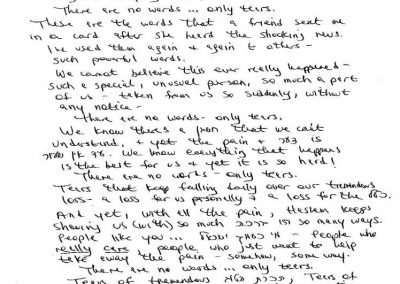 There are no words ... only tears.
These are the words that a friend sent me
in a card after she heard the shocking news.
I've used them again & again to others -
such powerful words.
We cannot believe this ever really happened -
such a special, unusual person, so much a part
of us - taken from us so suddenly, without
any notice -
There are no words - only tears.
We know there's a that we can't
understand, & yet the pain is
. We know everything that happens
is the best for us & yet it is so hard!
There are no words - only tears.
Tears that keep falling daily over our tremendous
loss - a loss for us personally & a loss for the כלל.
And yet, with all the pain, Hashem keeps
showing us (with) so much in so many ways.
People like you ... - people who
really care, people who just want to help
take away the pain - somehow, some way.
There are no words ... only tears.
Tears of tremendous, Tears of